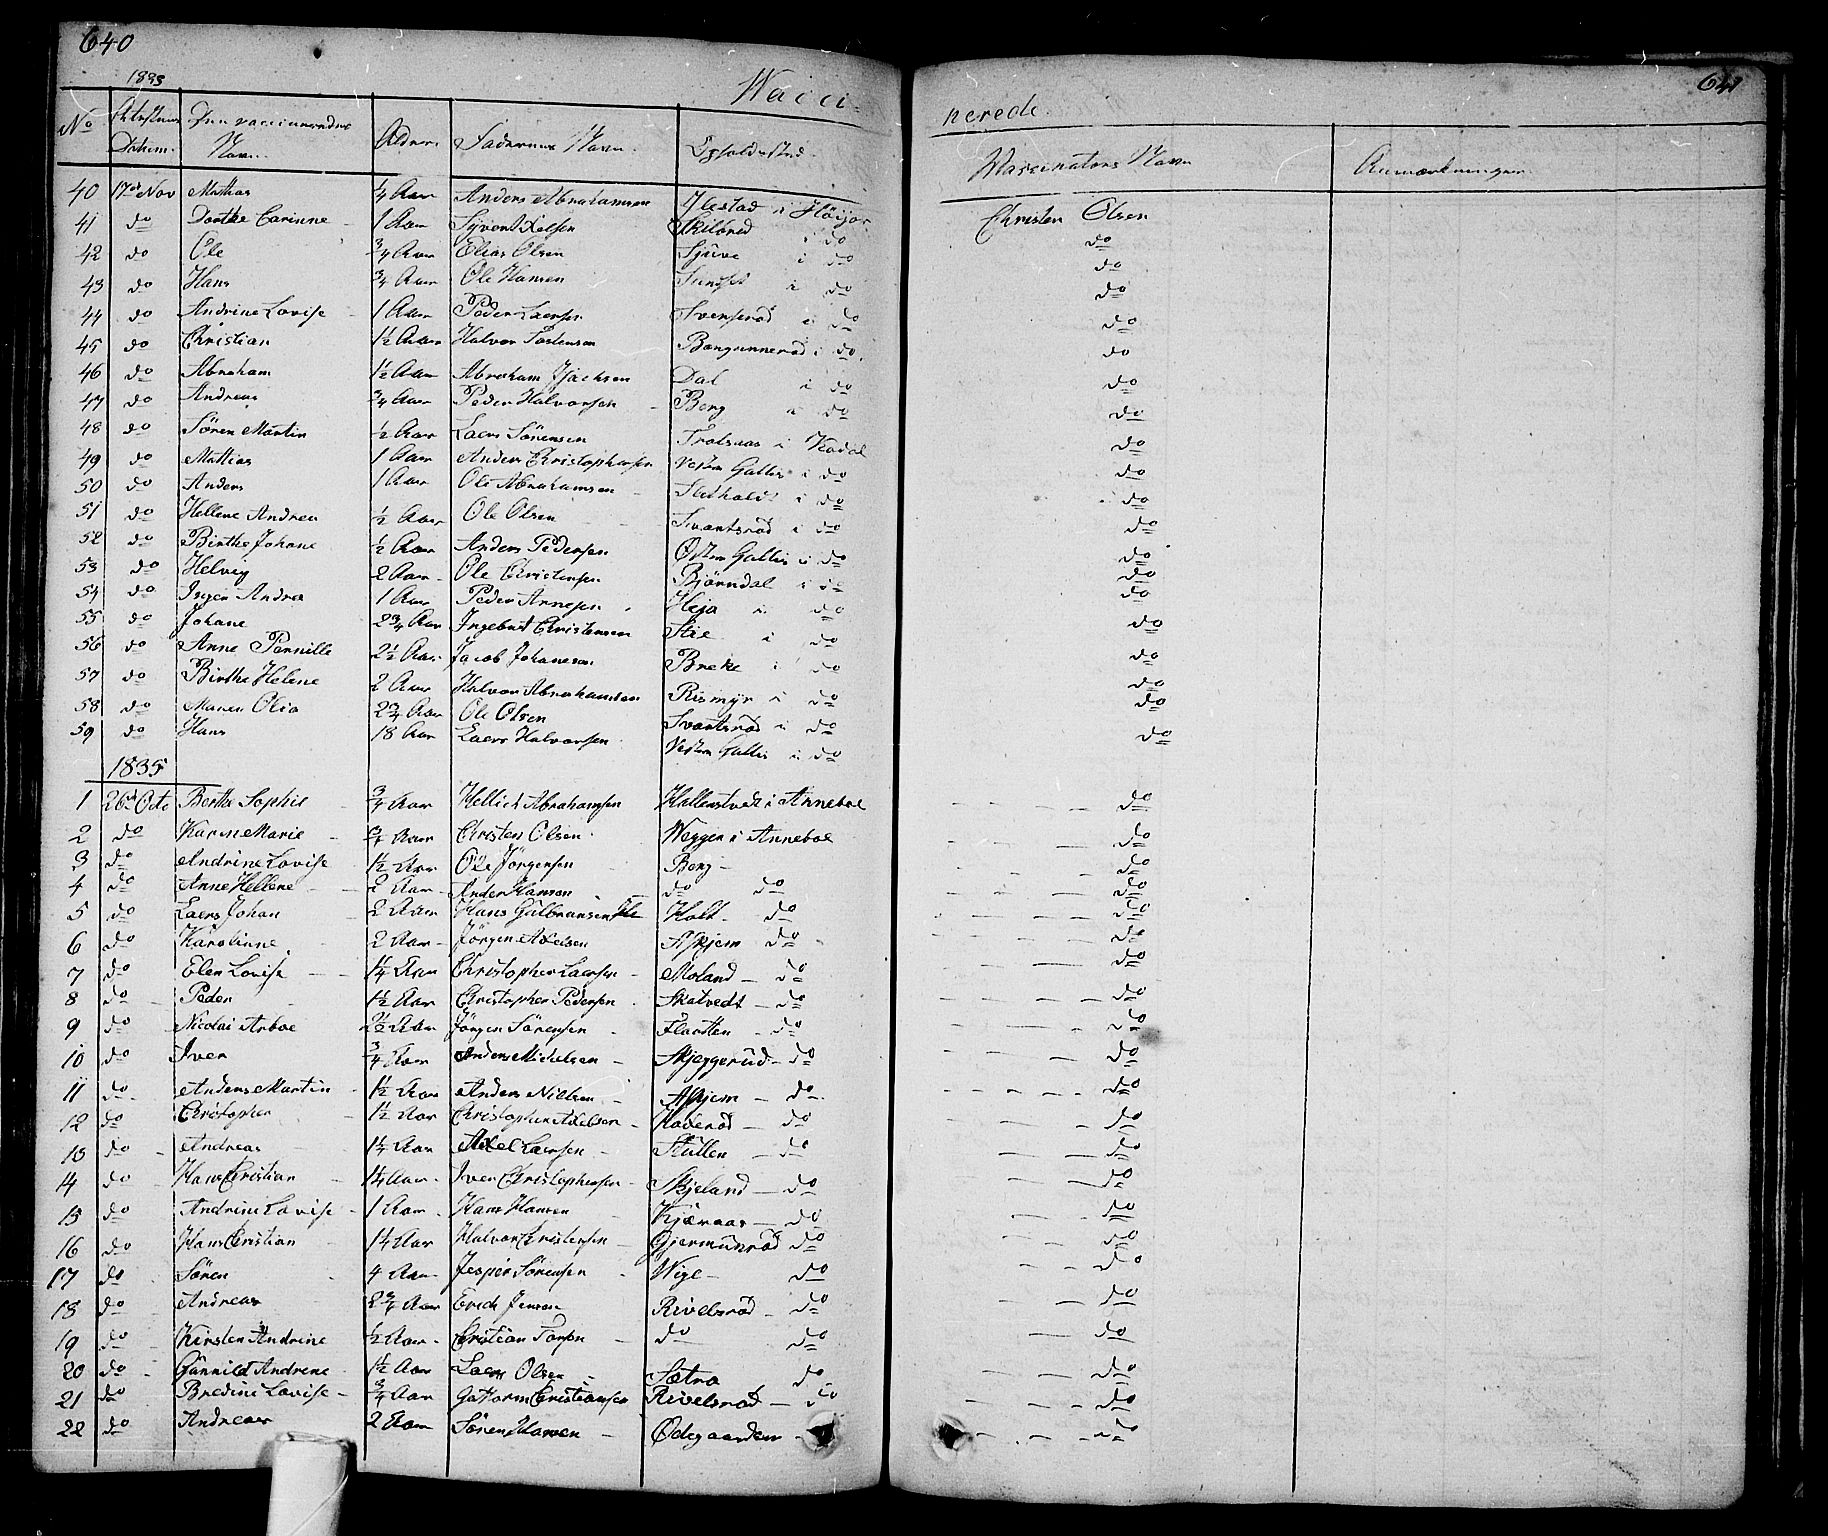 640 641
1835
Wacci- nerede.
No Attestens Datum. Den vaccinerendes Navn. Alder. Faderens Navn. Opholdssted. Vaccinatørs Navn Anmærkninger.
40 17de Nov Mathas 1/4 Aar Anders Abrahamsen Ilestad i Höijor Christen Olsen
41 do Dorthe Carinne 1 Aar Syvert Axelsen Skilbred i do do
42 do Ole 3/4 Aar Elias Olsen Sjuve i do do
43 do Hans 3/4 Aar Ole Hansen Sundset i do do
44 do Andrine Lovise 1 Aar Peder Larsen Svenserød i do do
45 do Christian 1 1/2 Aar Halvor Tostensen i do. do
46 do Abraham 1 1/2 Aar Abraham Jsachsen Dal i do do
47 do Andreas 3/4 Aar Peder Halvorsen Berg i do do
48 do Sören Martin 1/2 Aar Laers Sörensen Trolsaas i Kodal do
49 do Mathias 1 Aar Anders Christophersen Vestre Gallis i do do
50 do Anders 1 Aar Ole Abrahamsen i do do
51 do Hellene Andrea 1/2 Aar Ole Olsen Svartsrød i do do
52 do Birthe Johane 1/2 Aar Anders Pedersen Østre Gallis i do do
53 do Helvig 2 Aar Ole Christensen Bjørndal i do do
54 do Inger Andrea 1 Aar Peder Arnesen Heja i do do
55 do Johane 2 3/4 Aar Ingebret Christensen Stie i do do
56 do Anne Pernille 2 1/2 Aar Jacob Johanesen Breke i do do
57 do Birthe Helene 2 Aar Halvor Abrahamsen Rismyr i do do
58 do Maren Olia 2 3/4 Aar Ole Olsen Svartsrød i do do
59 do Hans 18 Aar Laers Halvorsen Vestre Gallis i do do
1835
1 26de Octo Berthe Sophie 3/4 Aar Hellich Abrahamsen Hallenstvedt i Anneboe do
2 do Karen Marie 3/4 Aar Christen Olsen Weggen i Anneboe do
3 do Andrine Lovise 1 1/2 Aar Ole Jörgensen Berg do
4 do Anne Hellene 2 Aar Ander Hansen do do do
5 do Laers Johan 2 Aar Hans Gulbransen Holt do do
6 do Karolinne 2 Aar Jörgen Axelsen Askjem do do
7 do Elen Lovise 1 1/4 Aar Christopher Laersen Moland do do
8 do Peder 1 1/2 Aar Christopher Pedersen Skatvedt do do
9 do Nicolai Arboe 2 1/2 Aar Jörgen Sörensen Flaatten do do
10 do Iver 3/4 Aar Anders Mickelsen Skjeggerud do do
11 do Anders Martin 1 1/2 Aar Anders Nilsen Askjem do do
12 do Christopher 1 1/2 Aar Christopher Axelsen Haverød do do
13 do Andreas 1 1/4 Aar Axel Laersen Stullen do do
14 do Hans Cristian 1 1/4 Aar Iver Christophersen Skjeland do do
15 do Andrine Lovise 1 Aar Hans Hansen Kjæraas do do
16 do Hans Cristian 1 1/4 Aar Halvor Cristensen Gjermunrød do do
17 do Sören 4 Aar Jesper Sörensen Wige do do
18 do Andreas 2 3/4 Aar Erich Jensen Rivelsrød do do
19 do Kirsten Andrine 1/2 Aar Cristian Larsen do do do
20 do Gunnild Andrene 1 1/2 Aar Laers Olsen Sætra do do
21 do Bredine Lovise 3/4 Aar Guttorm Cristiansen Rivelsrød do do
22 do Andreas 2 Aar Sören Hansen Ødegaarden do